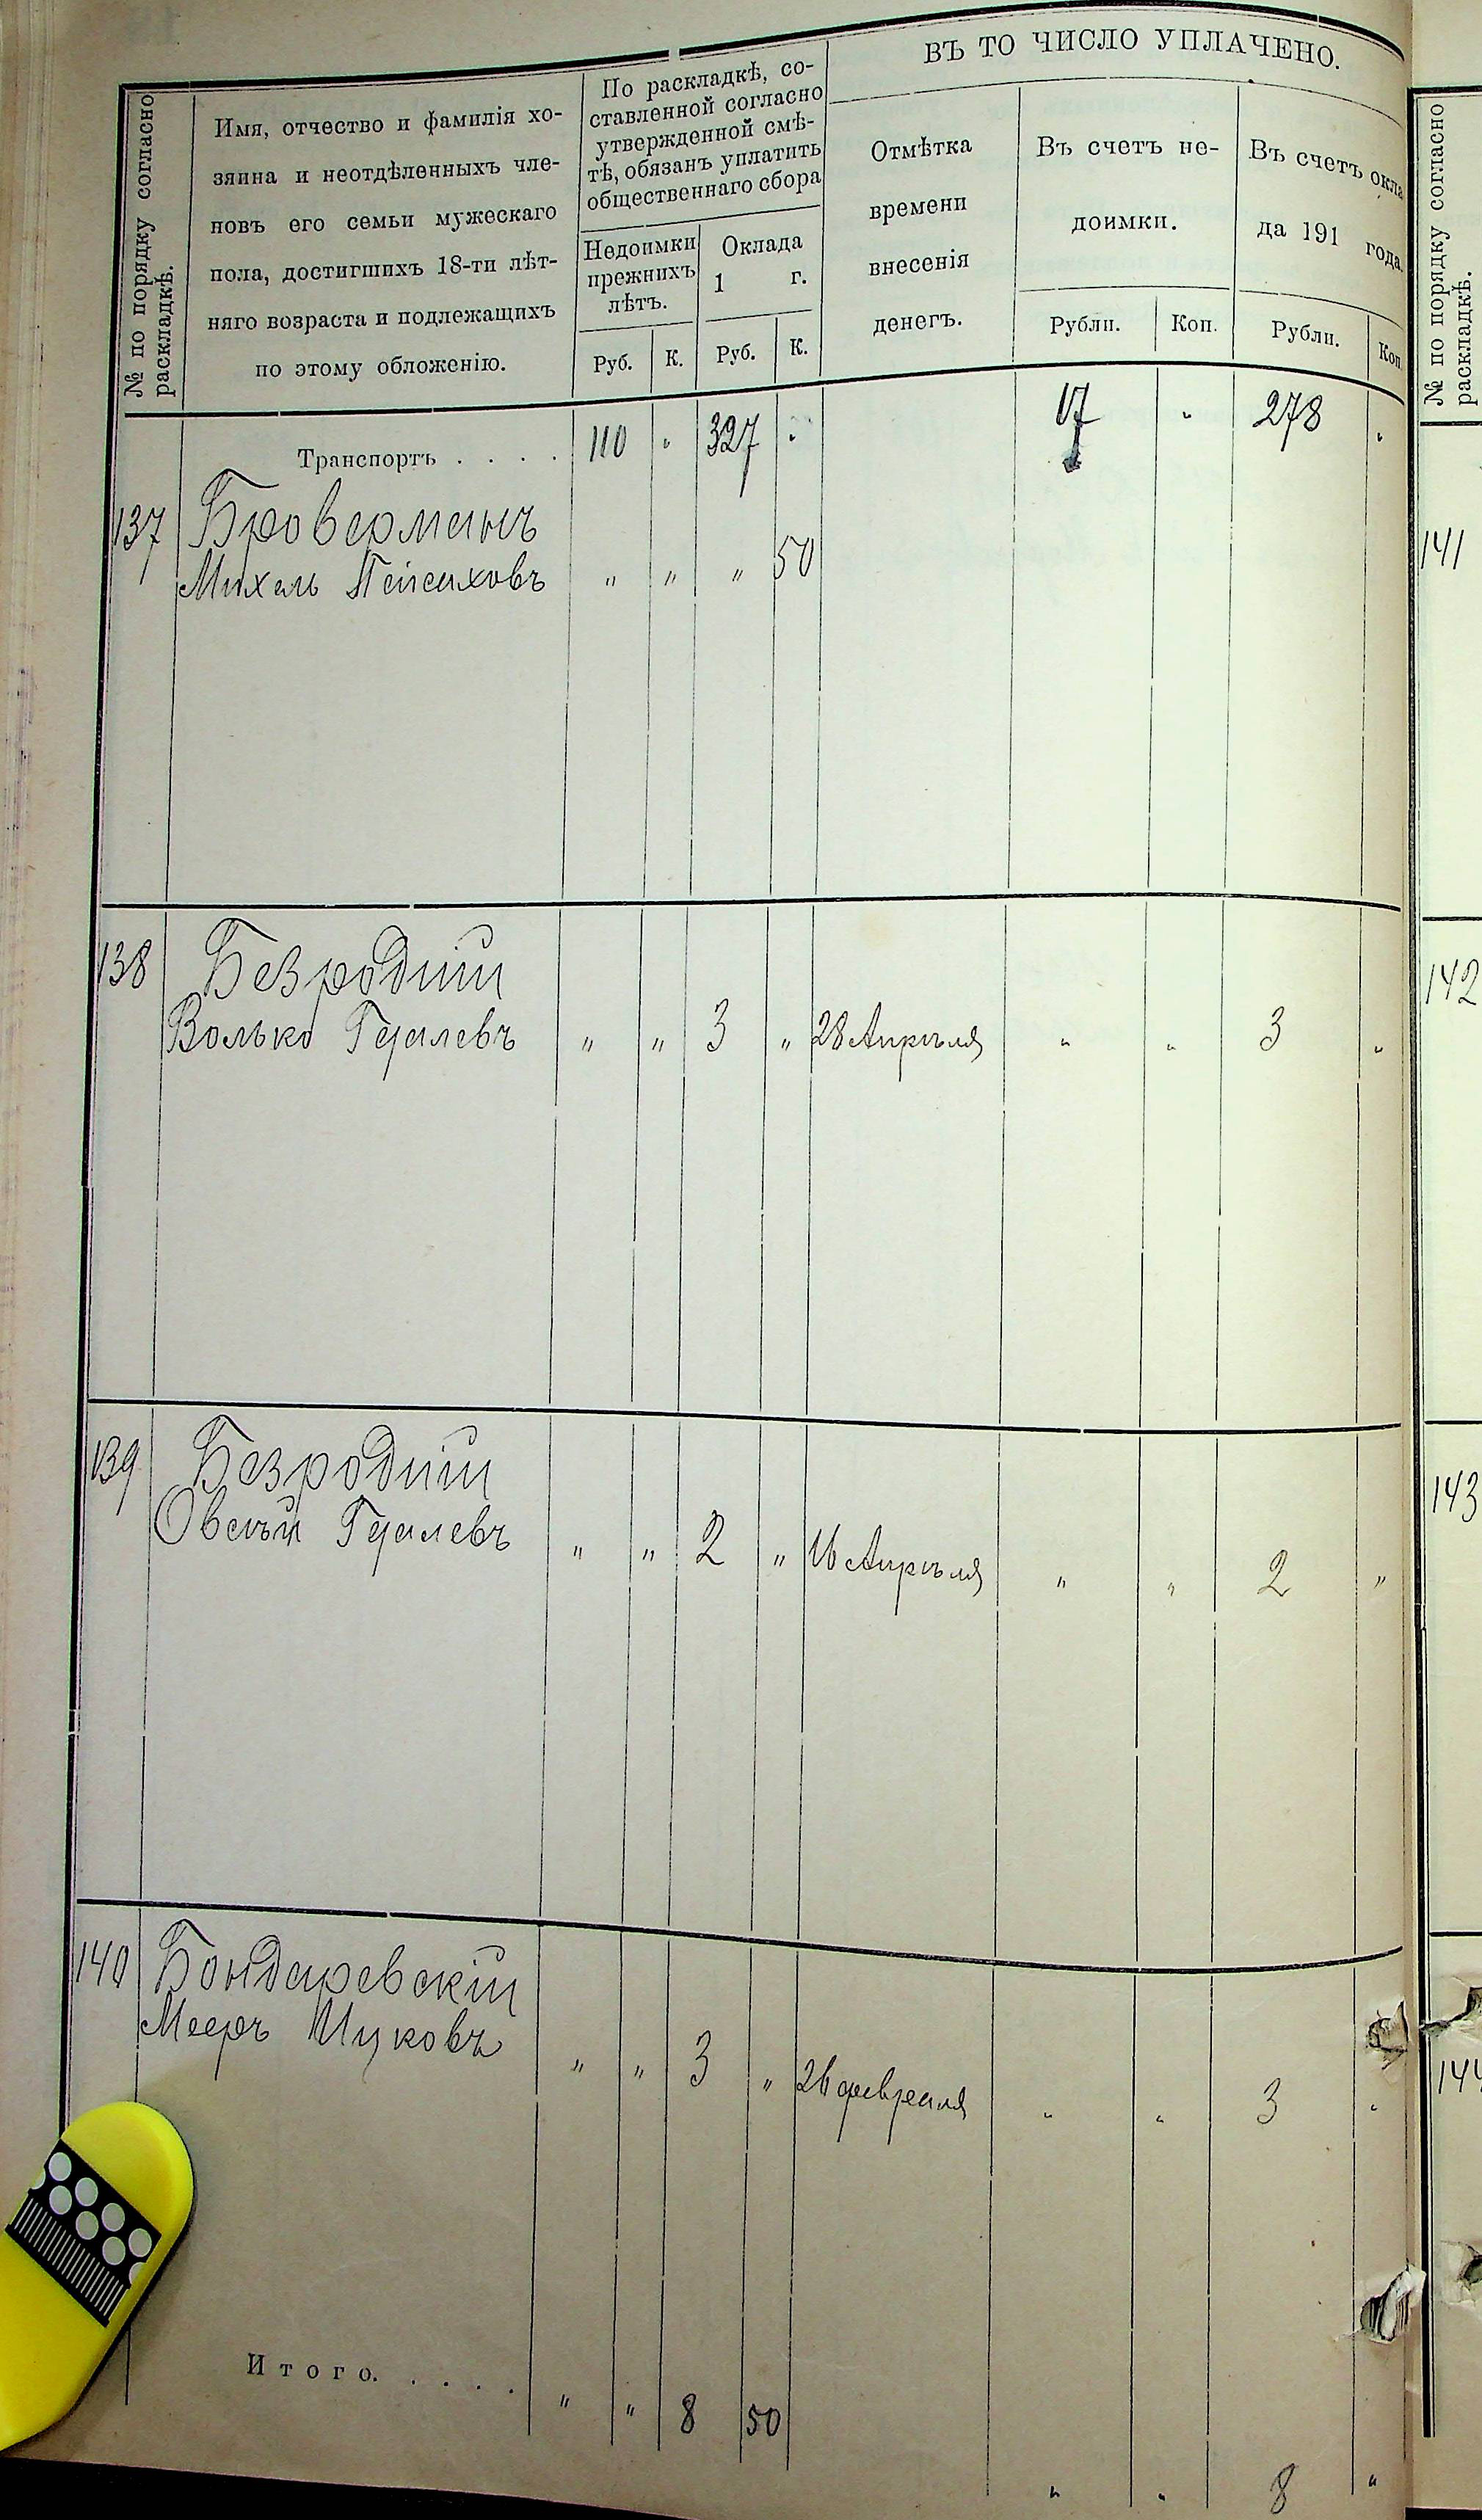 ВЪ ТО ЧИСЛО УПЛАЧЕНО.
№ по порядку согласно
раскладкѣ.
Имя, отчество и фамилія хо-
зяина и неотдѣленныхъ чле-
новъ его семьи мужескаго
пола, достигшихъ 18-ти лѣт-
няго возраста и подлежащихъ
по этому обложенію.
По раскладкѣ, со-
ставленной согласно
утвержденной смѣ-
тѣ, обязанъ уплатить
общественнаго сбора
Недоимки
прежнихъ
лѣтъ.
Оклада
1 г.
Руб. К. Руб. К.
Отмѣтка
времени
внесенія
денегъ.
Въ счетъ не-
доимки.
Рубли. Коп.
Въ счетъ окла
да 191 года
Рубли. Коп.
Транспортъ . . . . 110 „ 327 „ 17 „ 278 „
137 Броверманъ
Михель Пейсаховъ „ „ „ 50
138 Безродній
Волько Гдалевъ „ „ 3 „ 28 Апрѣля „ „ 3 „
139 Безродній
Овсѣй Гдалевъ „ „ 2 „ 16 Апрѣля „ „ 2 „
140 Бондаревскій
Мееръ Ицковъ „ „ 3 „ 26 февраля „ „ 3 „
Итого. . . . . „ „ 8 50
„ „ 8 „
№ по порядку согласно
раскладкѣ.
141
142
143
144